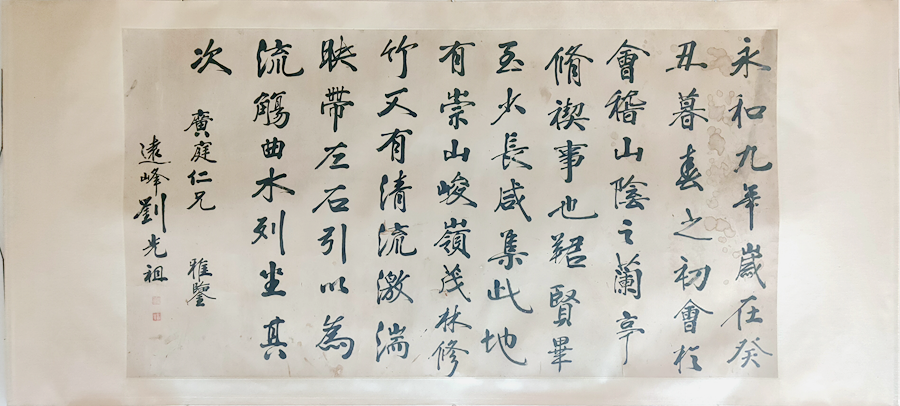 永和九年歲在癸
丑暮春之初會於
會稽山陰之蘭亭
脩禊事也羣賢畢
至少長咸集此地
有崇山峻嶺茂林修
竹又有清流激湍
映帶左右引以為
流觴曲水列坐其
次
廣庭仁兄 雅鑒
遠峰劉光祖